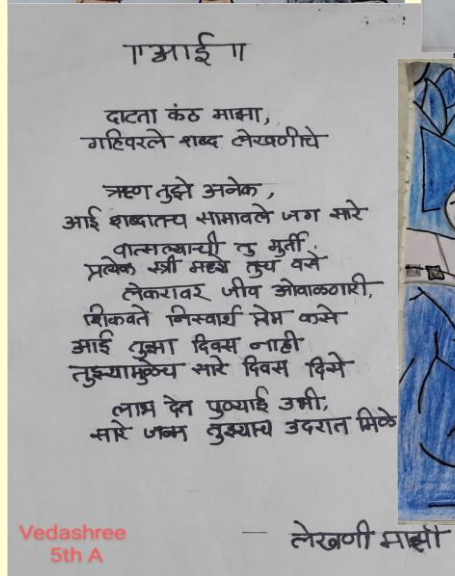 ॥ आई ॥
दाटता कंठ माझा,
गहिवरले शब्द लेखणीचे
ऋण तुझे अनेक,
आई शब्दातच सामावले जग सारे
वात्सल्याची तु मुर्ती.
प्रत्येक स्त्री मध्ये तुच वसे
लेकरावर जीव ओवाळणारी,
शिकवते निस्वार्थ प्रेम कसे
आई तुझा दिवस नाही
तुझ्यामुळेच सारे दिवस दिसे
लाभ देत पुण्याई उभी,
सारे जन्म तुझ्याच उदरात मिळे
– लेखणी माझी
Vedashree
5th A